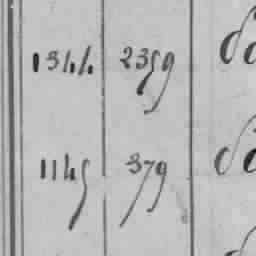 1344 2359 do
1145 379 do